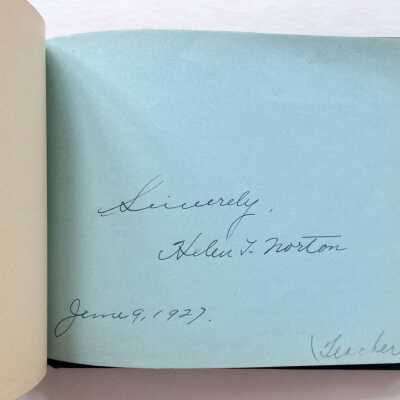 Sincerely,
Helen T. Norton
June 9, 1927.
(Teacher